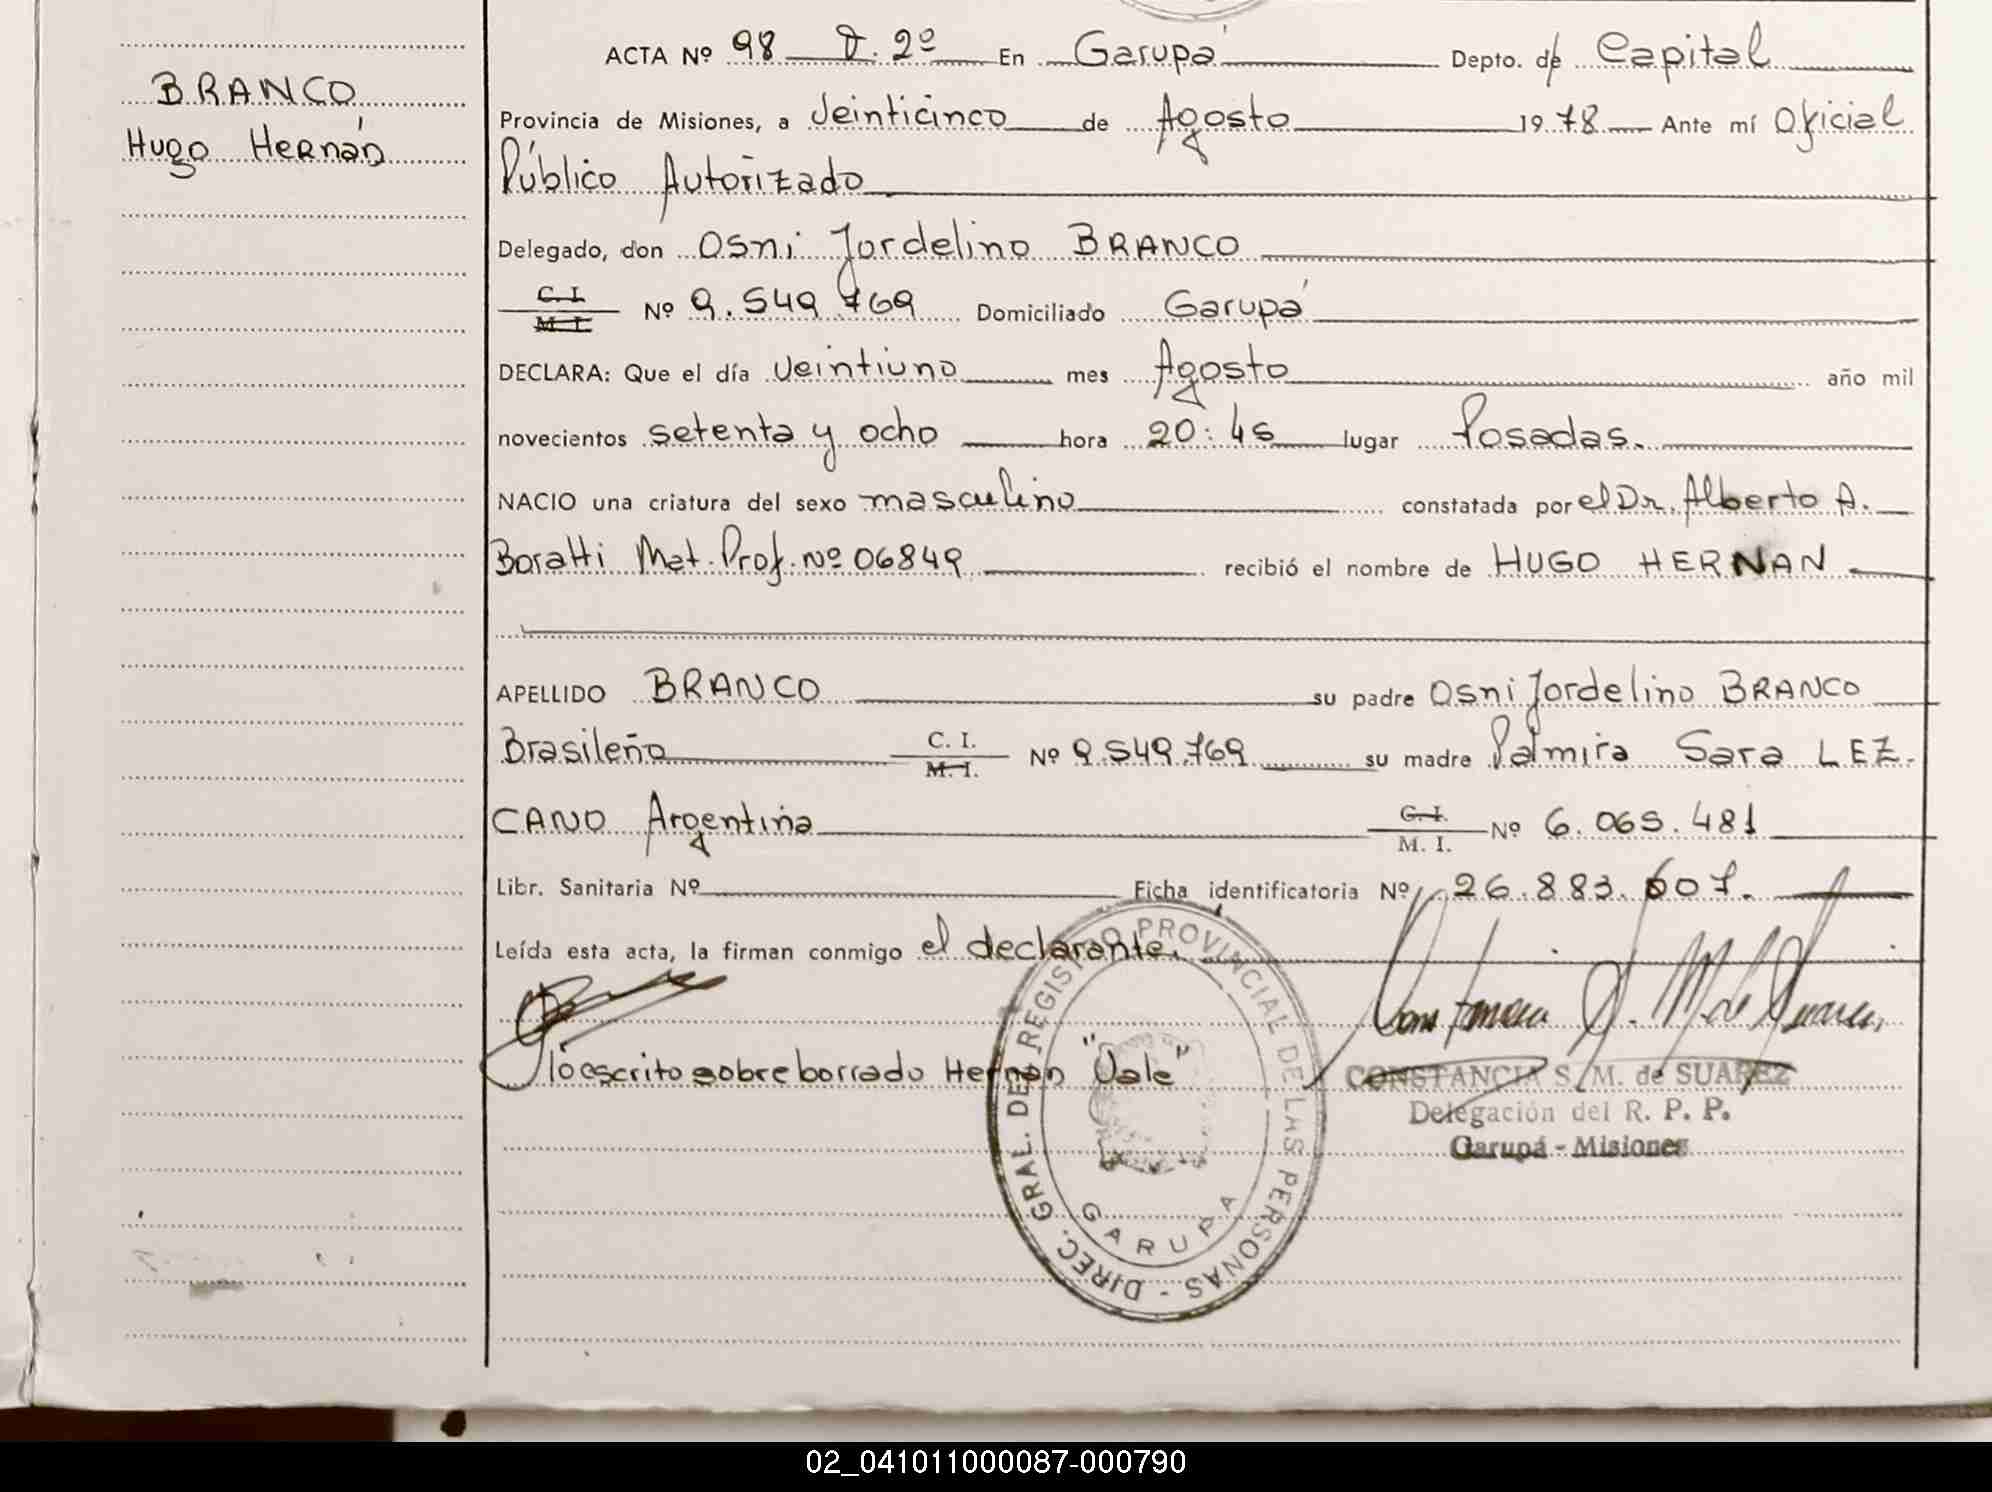 BRANCO
Hugo Hernán
ACTA Nº 98 D. 2º En Garupá Depto. de Capital
Provincia de Misiones, a Veinticinco de Agosto 1978 Ante mí Oficial
Público Autorizado
Delegado, don Osni Jordelino BRANCO
C. I.
M. I. Nº 9.549.769 Domiciliado Garupá
DECLARA: Que el día Veintiuno mes Agosto año mil
novecientos setenta y ocho hora 20:45 lugar Posadas.
NACIO una criatura del sexo masculino constatada por el Dr. Alberto A.
Boratti Mat. Prof. Nº 06849 recibió el nombre de HUGO HERNAN
APELLIDO BRANCO su padre Osni Jordelino BRANCO
Brasileño C. I.
M. I. Nº 9.549.769 su madre Palmira Sara LEZ-
CANO Argentina C. I.
M. I. Nº 6.065.481
Libr. Sanitaria Nº Ficha identificatoria Nº 26.883.607.
Leída esta acta, la firman conmigo el declarante.
lo escrito sobre borrado Hernan "Vale"
DIREC. GRAL. DEL REGISTRO PROVINCIAL DE LAS PERSONAS -
GARUPA
CONSTANCIA S. M. de SUAREZ
Delegación del R. P. P.
Garupá - Misiones
02_041011000087-000790